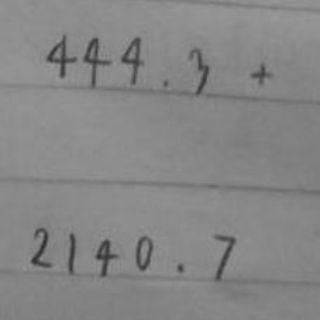 444.3 +
2140.7